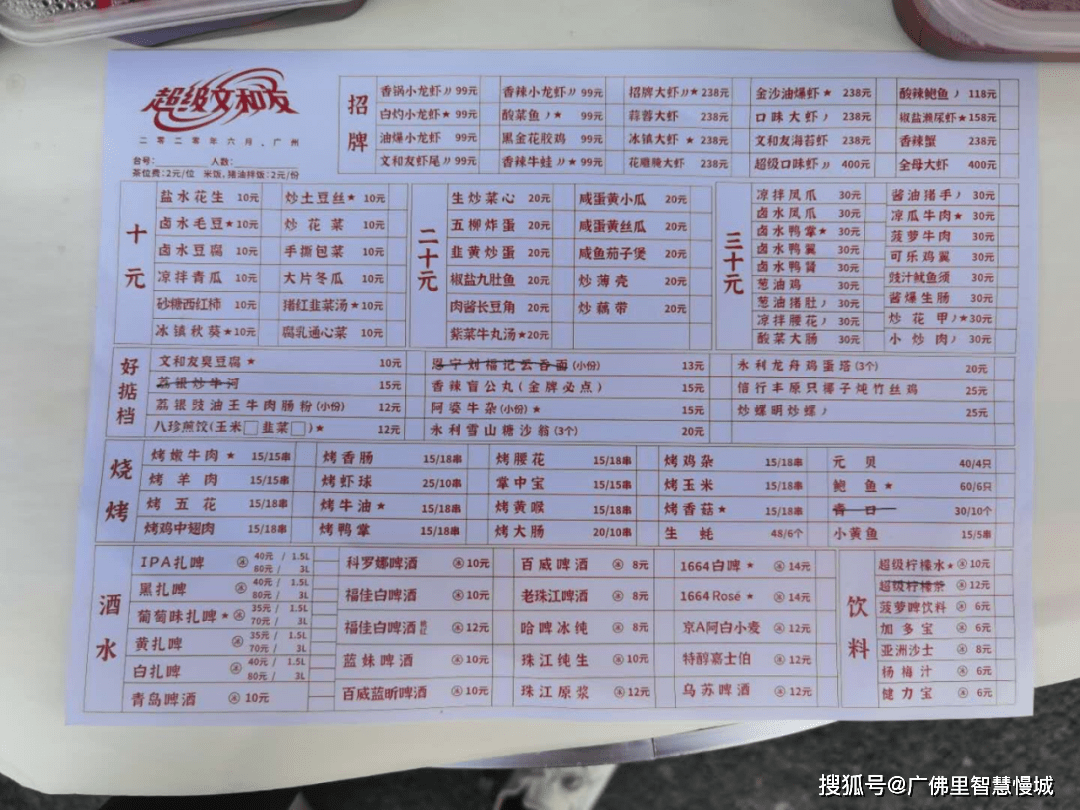 超级文和友
二零二零年六月,广州
台号:________ 人数:________
茶位费:2元/位 米饭,猪油拌饭:2元/份
招牌
香锅小龙虾〃99元 香辣小龙虾〃99元 招牌大虾〃★238元 金沙油爆虾★ 238元 酸辣鲍鱼丿 118元
白灼小龙虾★99元 酸菜鱼丿★ 99元 蒜蓉大虾 238元 口味大虾丿 238元 椒盐濑尿虾★158元
油爆小龙虾 99元 黑金花胶鸡 99元 冰镇大虾★ 238元 文和友海苔虾 238元 香辣蟹 238元
文和友虾尾〃99元 香辣牛蛙〃★99元 花雕晚大虾 238元 超级口味虾〃 400元 全母大虾 400元
十元
盐水花生 10元 炒土豆丝★ 10元
卤水毛豆★10元 炒花菜 10元
卤水豆腐 10元 手撕包菜 10元
凉拌青瓜 10元 大片冬瓜 10元
砂糖西红柿 10元 猪红韭菜汤★10元
冰镇秋葵★10元 腐乳通心菜 10元
二十元
生炒菜心 20元 咸蛋黄小瓜 20元
五柳炸蛋 20元 咸蛋黄丝瓜 20元
韭黄炒蛋 20元 咸鱼茄子煲 20元
椒盐九肚鱼 20元 炒薄壳 20元
肉酱长豆角 20元 炒藕带 20元
紫菜牛丸汤★20元
三十元
凉拌凤爪 30元 酱油猪手丿 30元
卤水凤爪 30元 凉瓜牛肉★ 30元
卤水鸭掌★ 30元 菠萝牛肉 30元
卤水鸭翼 30元 可乐鸡翼 30元
卤水鸭肾 30元 豉汁鱿鱼须 30元
葱油鸡 30元 酱爆生肠 30元
葱油猪肚丿 30元 炒花甲丿★30元
凉拌腰花丿 30元 小炒肉丿 30元
酸菜大肠 30元
好掂档
文和友臭豆腐★ 10元 恩宁刘福记云吞面(小份) 13元 永利龙舟鸡蛋塔(3个) 20元
荔银炒牛河 15元 香辣盲公丸(金牌必点) 15元 信行丰原只椰子炖竹丝鸡 25元
荔银豉油王牛肉肠粉(小份) 12元 阿婆牛杂(小份)★ 15元 炒螺明炒螺丿 25元
八珍煎饺(玉米□韭菜□)★ 12元 永利雪山糖沙翁(3个) 20元
烧烤
烤嫩牛肉★ 15/15串 烤香肠 15/18串 烤腰花 15/18串 烤鸡杂 15/18串 元贝 40/4只
烤羊肉 15/15串 烤虾球 25/10串 掌中宝 15/15串 烤玉米 15/18串 鲍鱼★ 60/6只
烤五花 15/18串 烤牛油★ 15/18串 烤黄喉 15/18串 烤香菇★ 15/18串 青口 30/10个
烤鸡中翅肉 15/18串 烤鸭掌 15/18串 烤大肠 20/10串 生蚝 48/6个 小黄鱼 15/5串
酒水
IPA扎啤 冰 40元 / 1.5L 80元 / 3L
黑扎啤 冰 40元 / 1.5L 80元 / 3L
葡萄味扎啤★冰 35元 / 1.5L 70元 / 3L
黄扎啤 冰 35元 / 1.5L 70元 / 3L
白扎啤 冰 40元 / 1.5L 80元 / 3L
青岛啤酒 冰 10元
科罗娜啤酒 冰10元 百威啤酒 冰 8元 1664白啤★ 冰14元
福佳白啤酒 冰10元 老珠江啤酒 冰 8元 1664 Rosé★ 冰14元
福佳白啤酒 冰12元 哈啤冰纯 冰 8元 京A阿白小麦 冰12元
蓝妹啤酒 冰10元 珠江纯生 冰10元 特醇嘉士伯 冰12元
百威蓝昕啤酒 冰10元 珠江原浆 冰12元 乌苏啤酒 冰12元
饮料
超级柠檬水★冰10元
超级柠檬茶 冰12元
菠萝啤饮料 冰 6元
加多宝 冰 6元
亚洲沙士 冰 8元
杨梅汁 冰 6元
健力宝 冰 6元
搜狐号@广佛里智慧慢城